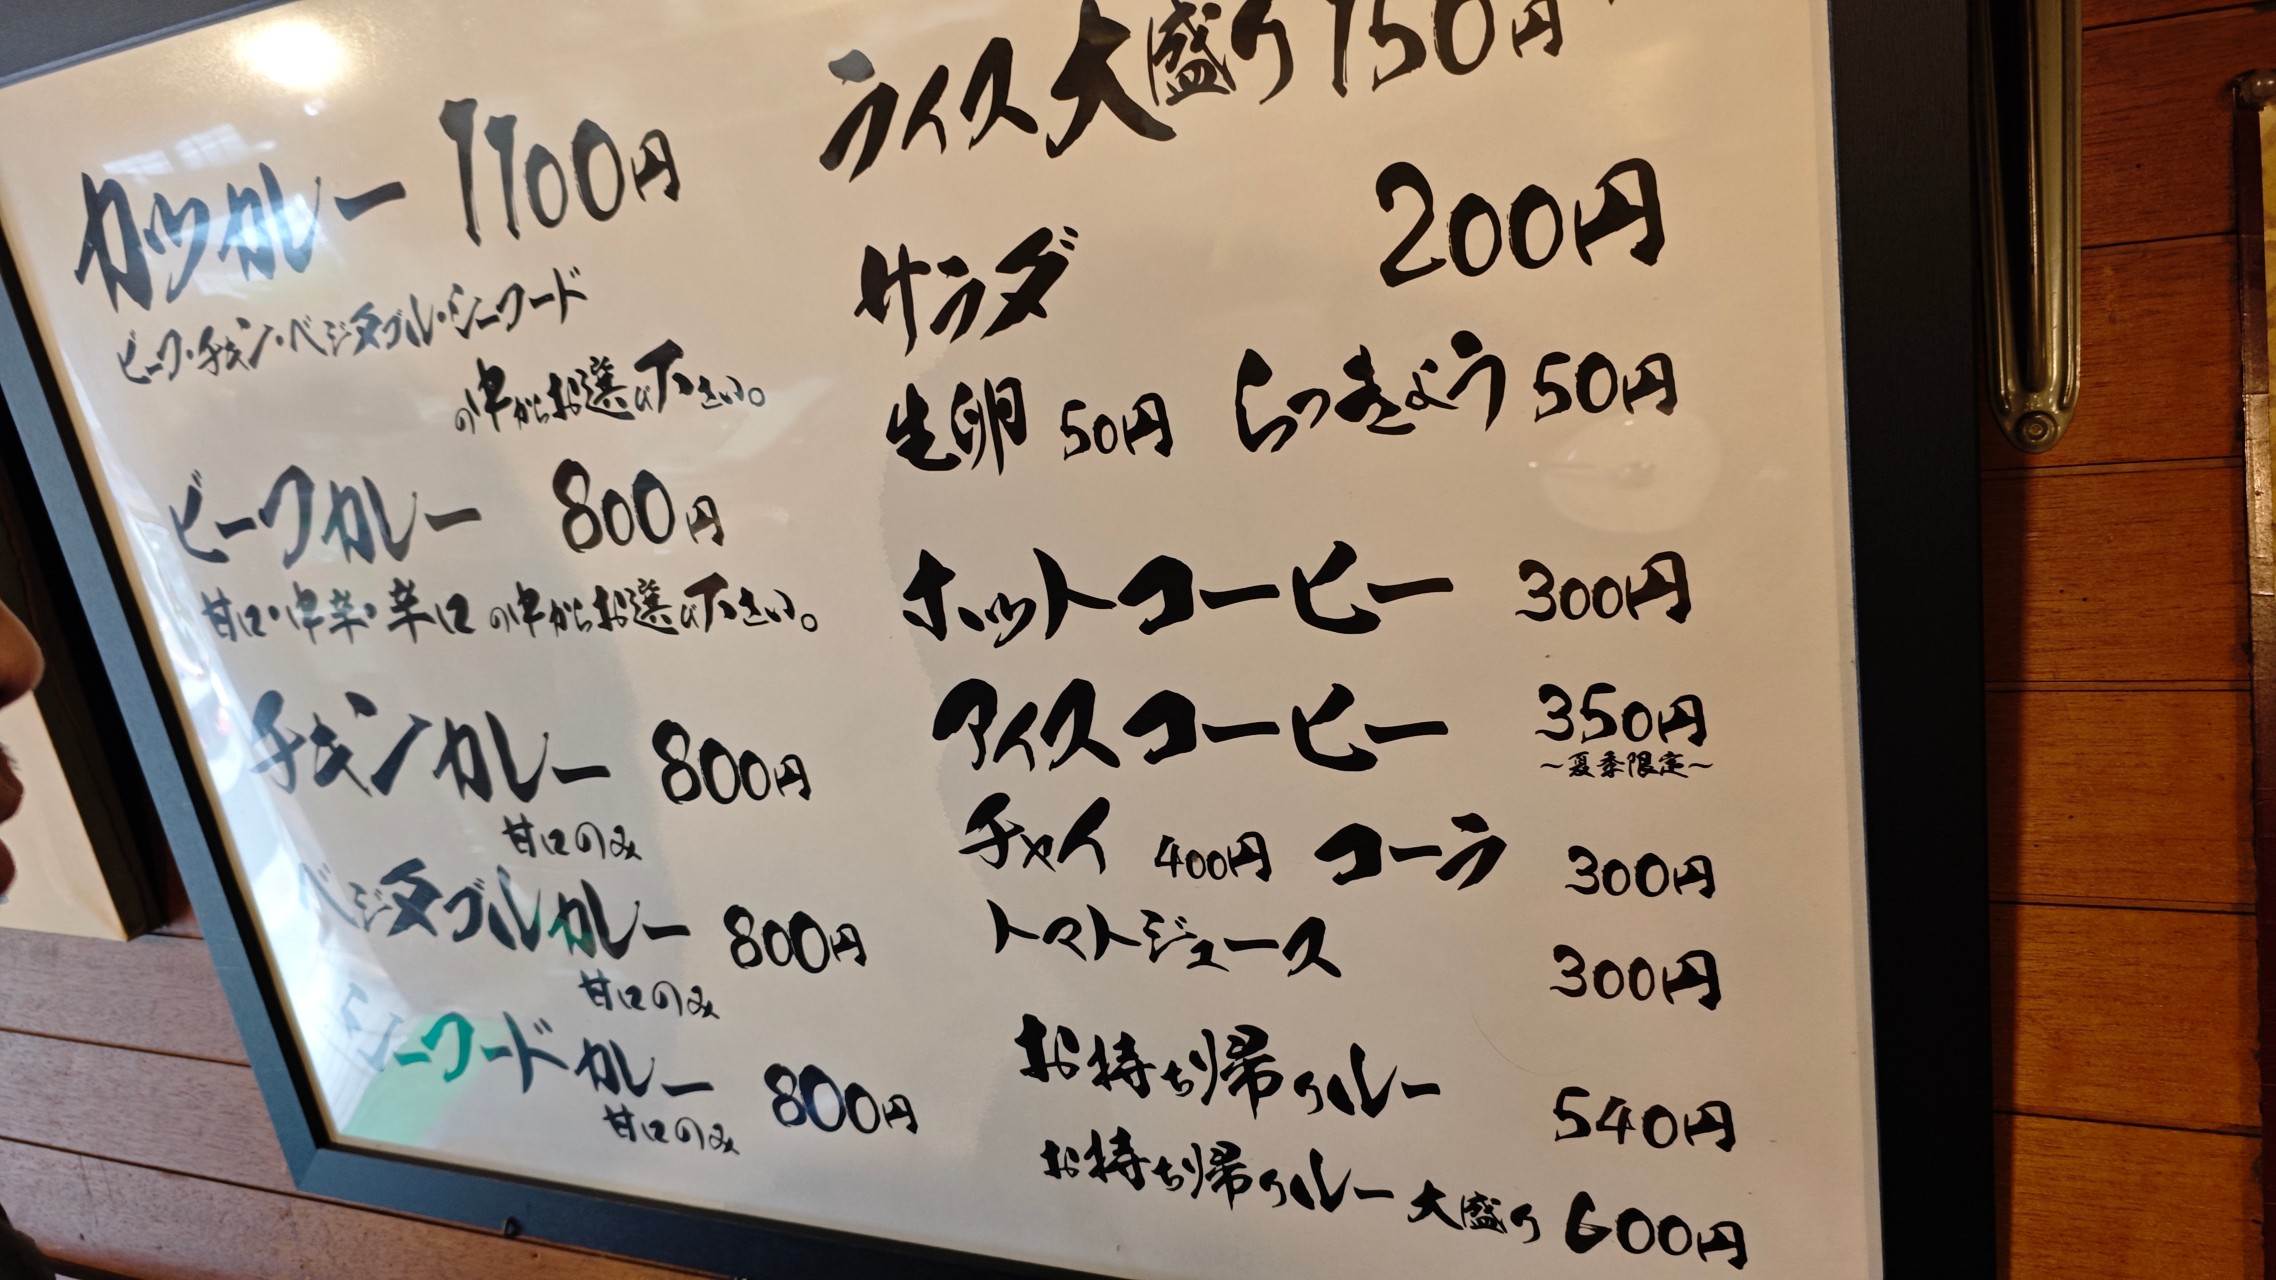 カツカレー 1100円
ビーフ・チキン・ベジタブル・シーフード
の中からお選び下さい。
ビーフカレー 800円
甘口・中辛・辛口の中からお選び下さい。
チキンカレー 800円
甘口のみ
ベジタブルカレー 800円
甘口のみ
シーフードカレー 800円
甘口のみ
ライス大盛り 150円
サラダ 200円
生卵 50円 らっきょう 50円
ホットコーヒー 300円
アイスコーヒー 350円
～夏季限定～
チャイ 400円 コーラ 300円
トマトジュース 300円
お持ち帰りルー 540円
お持ち帰りルー大盛り 600円